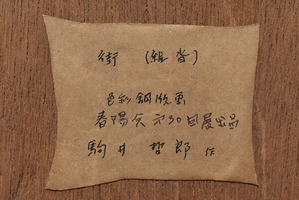 街 (組皆)
色彩銅版画
春陽会第30回展出品
駒井哲郎 作